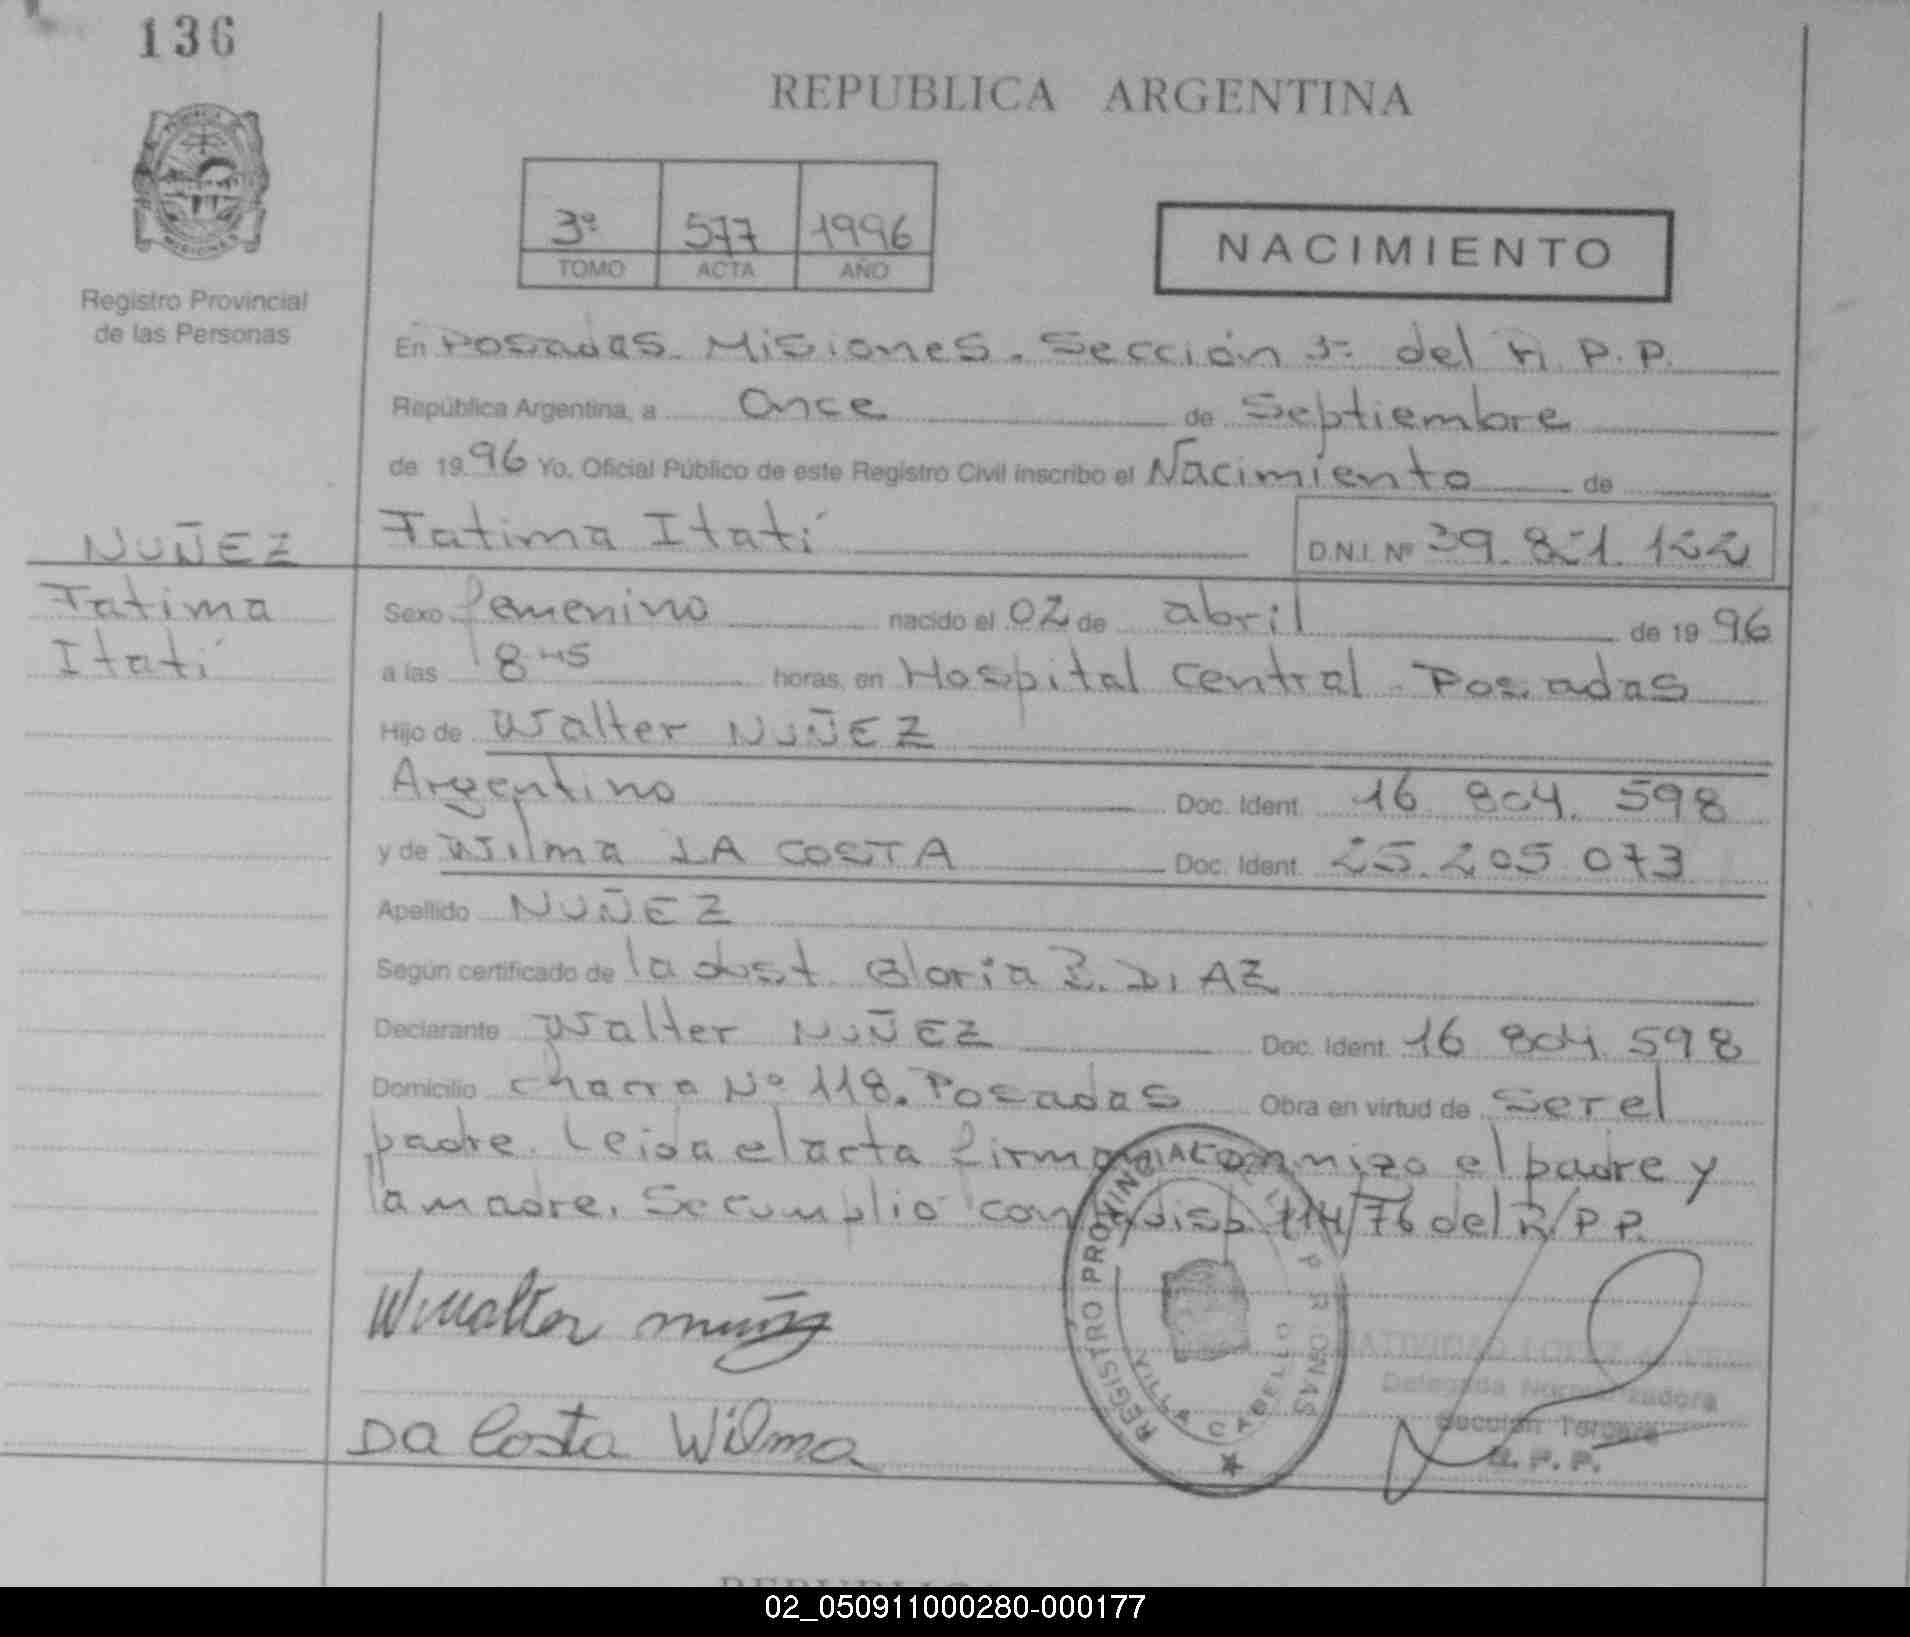 136
REPUBLICA ARGENTINA
3º 577 1996
TOMO ACTA AÑO
NACIMIENTO
Registro Provincial
de las Personas
En Posadas. Misiones. Sección 3ª del R.P.P.
República Argentina, a once de Septiembre
de 1996 Yo, Oficial Público de este Registro Civil inscribo el Nacimiento de
NUÑEZ
Fatima Itatí
D.N.I. Nº 39.821.122
Fatima
Itatí
Sexo femenino nacido el 02 de abril de 1996
a las 8 45 horas, en Hospital Central Posadas
Hijo de Walter NUÑEZ
Argentino Doc. Ident. 16 804. 598
y de Wilma DA COSTA Doc. Ident. 25.205 073
Apellido NUÑEZ
Según certificado de la obst. Gloria DIAZ
Declarante Walter NUÑEZ Doc. Ident. 16 804 598
Domicilio chacra Nº 118. Posadas Obra en virtud de ser el
padre. Leida el acta firma conmigo el padre y
la madre. Se cumplió con disp. 114/76 del R/P P.
Walter
Da Costa Wilma
REGISTRO PROVINCIAL DE LAS PERSONAS
VILLA CABELLO
NATIVIDAD LOPEZ
Delegada Normalizadora
Sección Tercera
R. P. P.
02_050911000280-000177